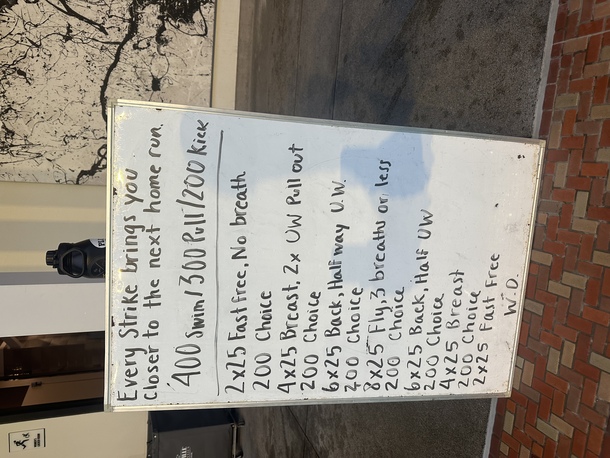 Every Strike brings you
Closer to the next home run.
400 Swim/300 Pull/200 Kick
2x25 Fast free, No breath
200 Choice
4x25 Breast, 2x UW Pull out
200 Choice
6x25 Back, Half way U.W.
200 Choice
8x25 Fly, 3 breaths or less
200 Choice
6x25 Back, Half UW
200 Choice
4x25 Breast
200 Choice
2x25 Fast Free
W.D.